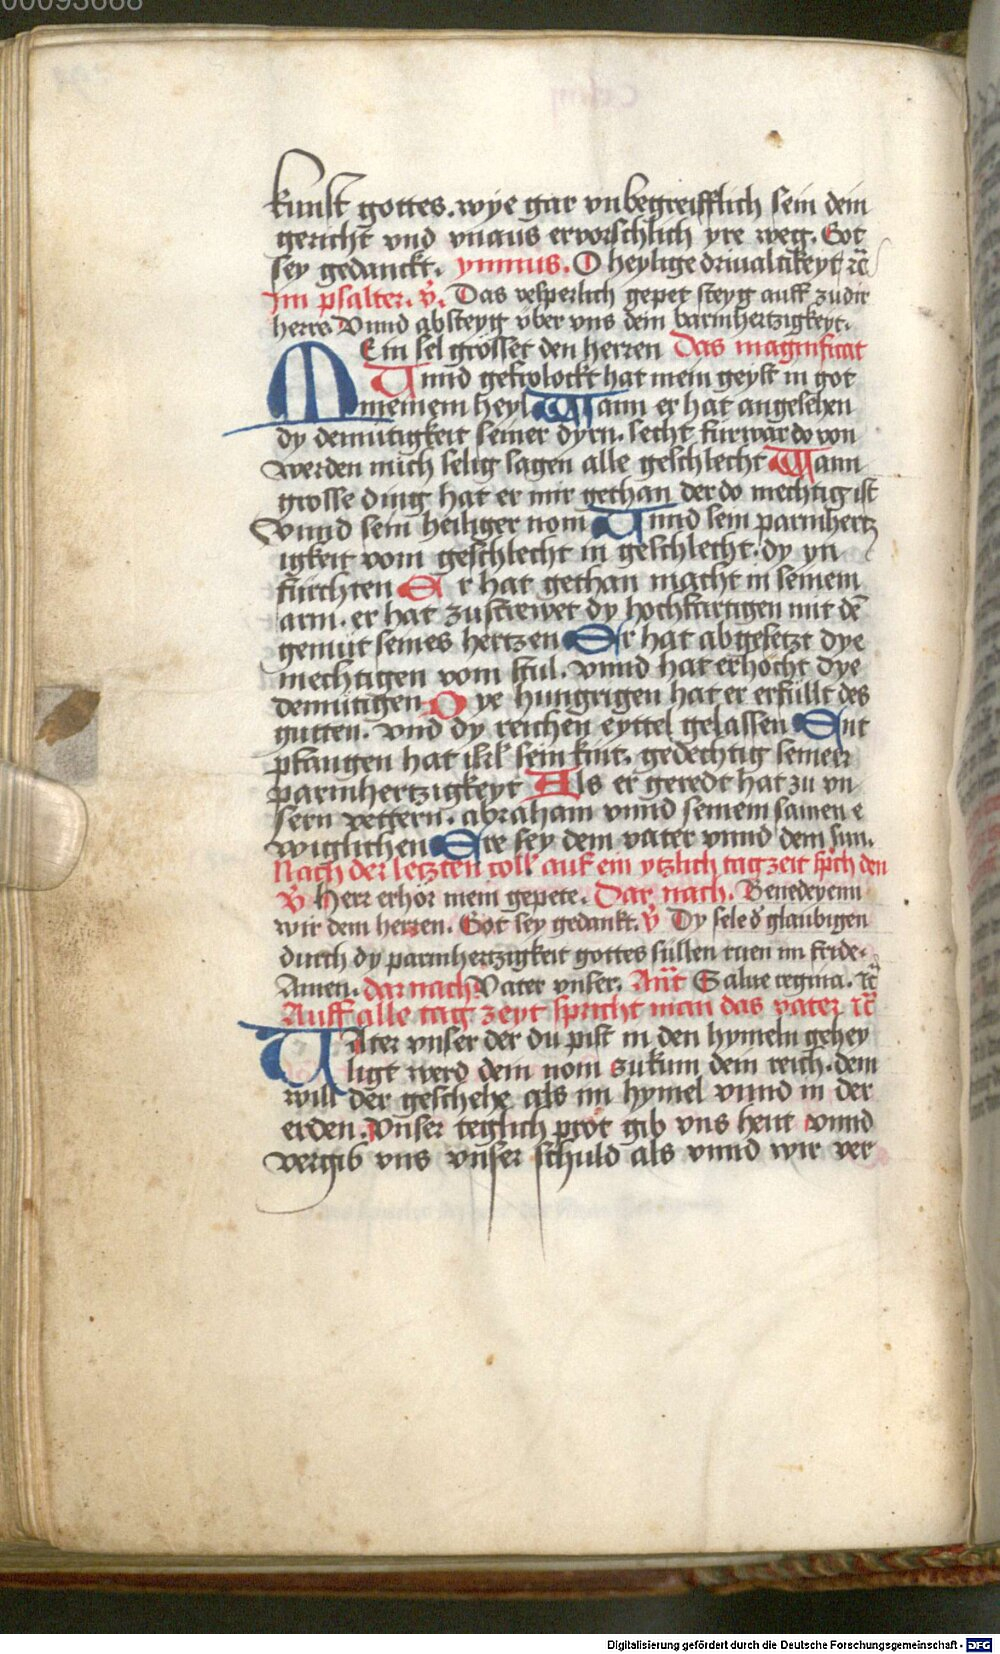 00093668
kunst gottes. wye gar vnbegreifflich sein dein
gericht vnd vnaus ervorschlich yre weg. Got
sey gedanckt. ymnus. O heylige driualtikeyt r̄c
Im psalter. v̄. Das vesperlich gepet steyg auff zu dir
herre Vnnd absteyg vber vns dein barmhertzigkeyt.
MEin sel grosset den herren Das magnificat
Vnnd gefrolockt hat mein geyst in got
meinem heyl Wann er hat angesehen
dy demutigkeit seiner dyrn. secht furwar do von
werden mich selig sagen alle geschlecht Wann
grosse ding hat er mir gethan der do mechtig ist
Vnnd sein heiliger nom Vnnd sein parmhertz
igkeit vom geschlecht in geschlecht. dy yn
furchten Er hat gethan macht in seinem
arm. er hat zustrewet dy hochfartigen mit dē
gemut seines hertzen Er hat abgesetzt dye
mechtigen vom stul. vnnd hat erhocht dye
demutigen Dye hungrigen hat er erfullt des
gutten. vnd dy reichen eyttel gelassen Ent
pfangen hat isrl sein kint. gedechtig seineer
parmhertzigkeyt Als er geredt hat zu vn
sern vettern. abraham vnnd seinem samen e
wiglichen Ere sey dem vater vnnd dem sun.
Nach der letzten coll auf ein ytzlich tagzeit sprich den
v̄ Herr erhor mein gepete. Dar nach. Benedeyenn
wir dem herren. Got sey gedankt. v̄ Dy sele d glaubigen
durch dy parmhertzigkeit gottes sullen ruen im fride.
Amen. dar nach Vater vnser. Ant Salue regina. r̄c
Auff alle tag zeyt spricht man das vater r̄c
VAter vnser der du pist in den hymeln gehey
ligt werd dein nom zukum dein reich. dein
will der geschehe als im hymel vnnd in der
erden. Vnser teglich prot gib vns heut vnnd
vergib vns vnser schuld als vnnd wir ver
Digitalisierung gefördert durch die Deutsche Forschungsgemeinschaft - DFG